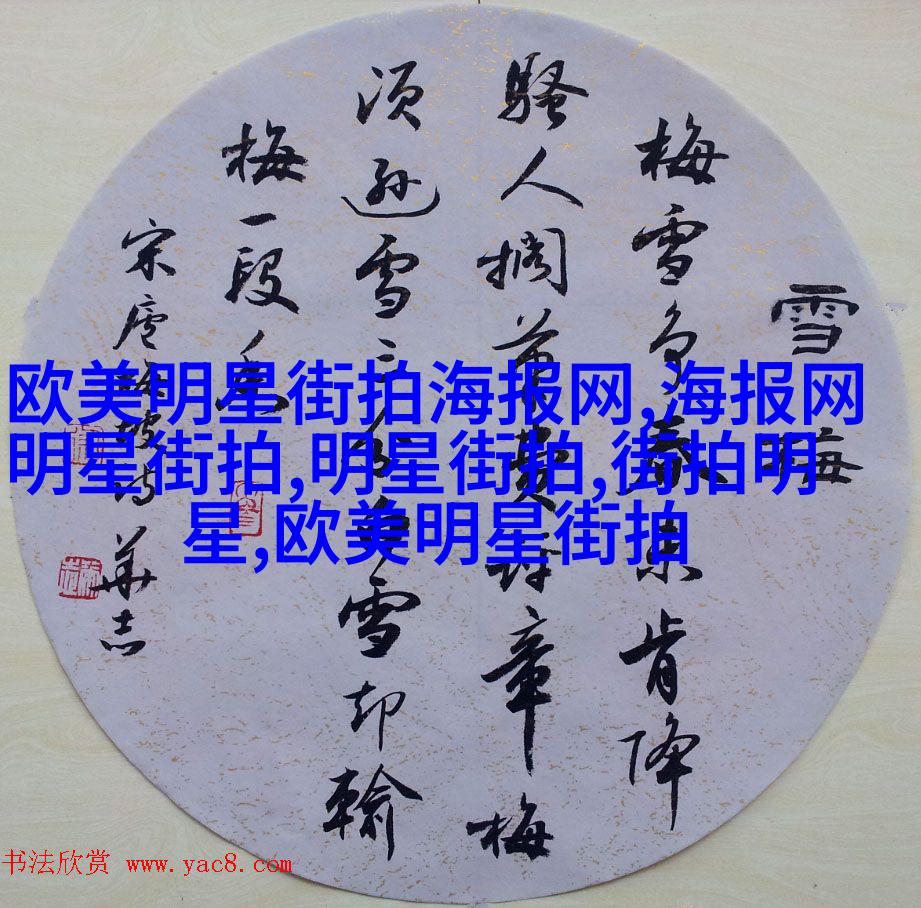 雪梅
梅雪争春未肯降
騷人擱筆費評章梅
須遜雪三分白雪却輸
梅一段香
宋盧梅坡詩 華志
欧美明星街拍海报网,海报网
明星街拍,明星街拍,街拍明
星,欧美明星街拍
书法欣赏 www.yac8.com